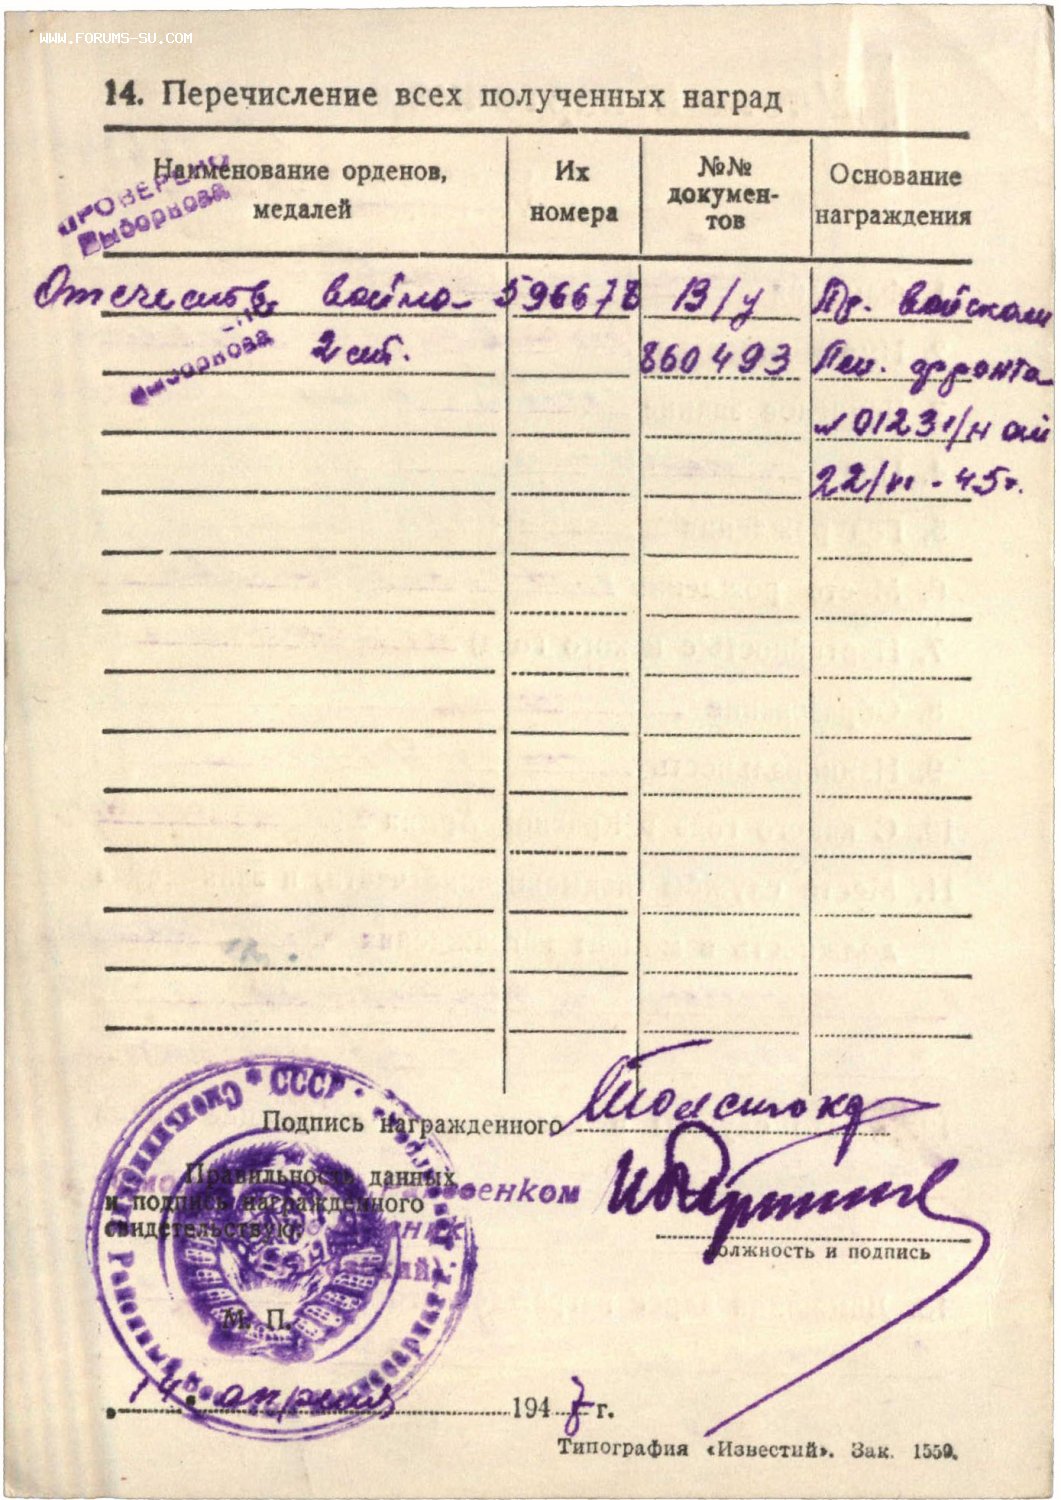 WWW.FORUMS-SU.COM
14. Перечисление всех полученных наград
Наименование орденов, медалей
Их номера
№№ докумен-тов
Основание награждения
ПРОВЕРЕНО
Выборнова
Отечеств. война 596678 В/у Пр. войскам
Выборнова
2 ст. 860493 Лен. фронта
№ 01231/н от
22/VI - 45 г.
СССР
Подпись награжденного
Правильность данных
и подпись награжденного
свидетельствую: военком
должность и подпись
М. П.
14 апреля 1947 г.
Типография «Известий». Зак. 1559.